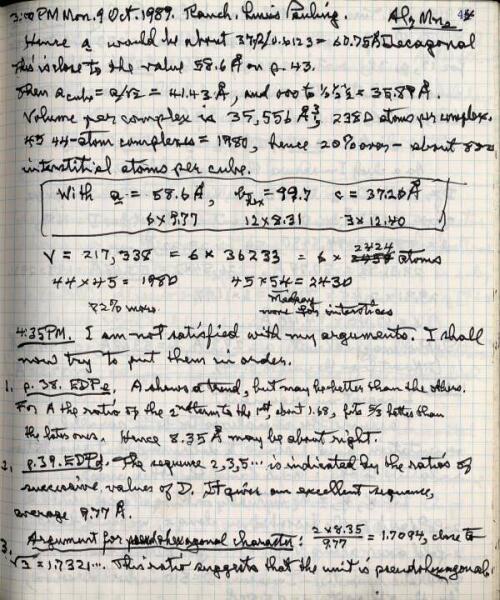 3:00 PM Mon. 9 Oct. 1989. Ranch, Linus Pauling. Al₄Mn 45
Hence a would be about 37.2/0.6123 = 60.75 Å Decagonal
This is close to the value 58.6 Å on p. 43.
Then a cube = a/√2 = 41.43 Å, and 000 to ½½½ = 35.89 Å.
Volume per complex is 35,556 Å³, 2380 atoms per complex.
45 44-atom complexes = 1980, hence 20% over - about 800
interstitial atoms per cube.
With a = 58.6 Å, = 99.7 c = 37.20 Å
6 x 9.77 12 x 8.31 3 x 12.40
V = 217,338 = 6 x 36233 = 6 x 2424 atoms
44 x 45 = 1980 45 x 54 = 2430
22% more.
more for interstices
4:35 PM. I am not satisfied with my arguments. I shall
now try to put them in order.
1. p. 38. EDPe A shows a trend, but may be better than the others.
For A the ratio of the 2nd term to the 1st, about 1.68, fits 5/3 better than
the later ones. Hence 8.35 Å may be about right.
2. p. 39. EDPd. The sequence 2, 3, 5 ··· is indicated by the ratios of
successive values of D. It gives an excellent sequence,
average 9.77 Å.
3. Argument for pseudohexagonal character: 2 x 8.35 / 9.77 = 1.7094, close to
√3 = 1.7321 ··· This ratio suggests that the unit is pseudohexagonal.